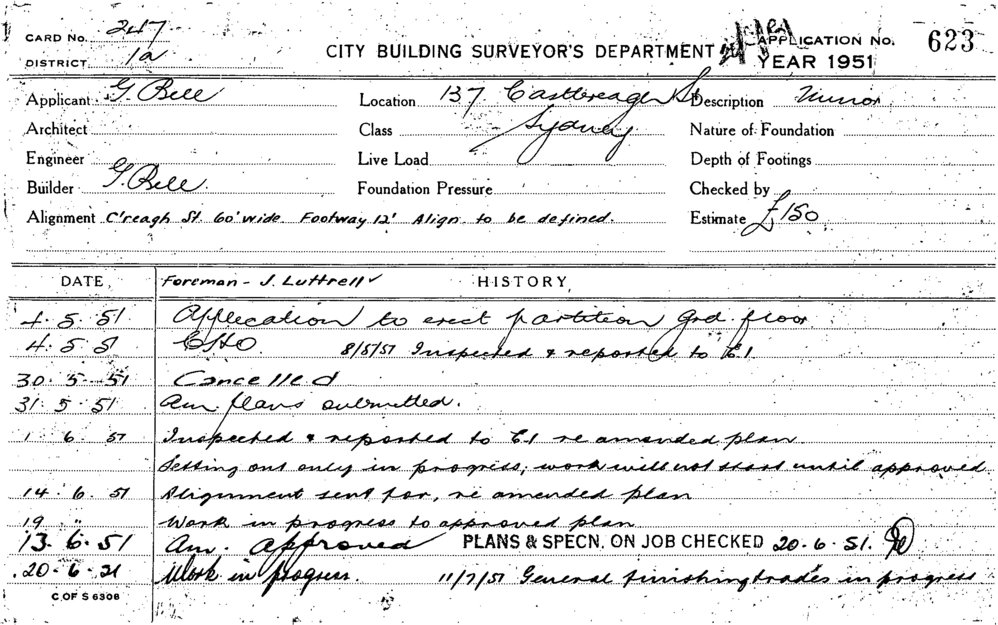 CARD No. 247
DISTRICT. 1a
CITY BUILDING SURVEYOR'S DEPARTMENT
APPLICATION No. 623
YEAR 1951
Applicant G. Bell
Location 137 Castlereagh St
Description Minor
Architect
Class Sydney
Nature of Foundation
Engineer
Live Load
Depth of Footings
Builder G. Bell.
Foundation Pressure
Checked by
Alignment C'reagh St. 60' wide. Footway 12' Align to be defined.
Estimate £150
DATE Foreman - J. Luttrell HISTORY
4. 5. 51 Application to erect partition Grd floor
4. 5. 51 CHO. 8/5/51 Inspected & reported to E.I
30. 5. 51 Cancelled
31. 5. 51 Am plans submitted.
1 6. 51 Inspected & reported to E.I re amended plan.
Setting out only in progress; work will not start until approved
14. 6. 51 Alignment sent for, re amended plan
19 " Work in progress to approved plan
13. 6. 51 Am. approved PLANS & SPECN. ON JOB CHECKED 20.6.51.
20-6-21 Work in progress. 11/7/51 General finishing trades in progress
C OF S 6308